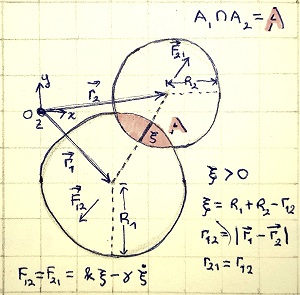 A₁∩A₂=A
F⃗₂₁
R₂
y
r⃗₂
O
z
x
ξ
A
r⃗₁
F⃗₁₂
R₁
ξ>0
ξ=R₁+R₂-r₁₂
r₁₂=|r⃗₁-r⃗₂|
r₂₁=r₁₂
F₁₂=F₂₁=kξ-γξ̇